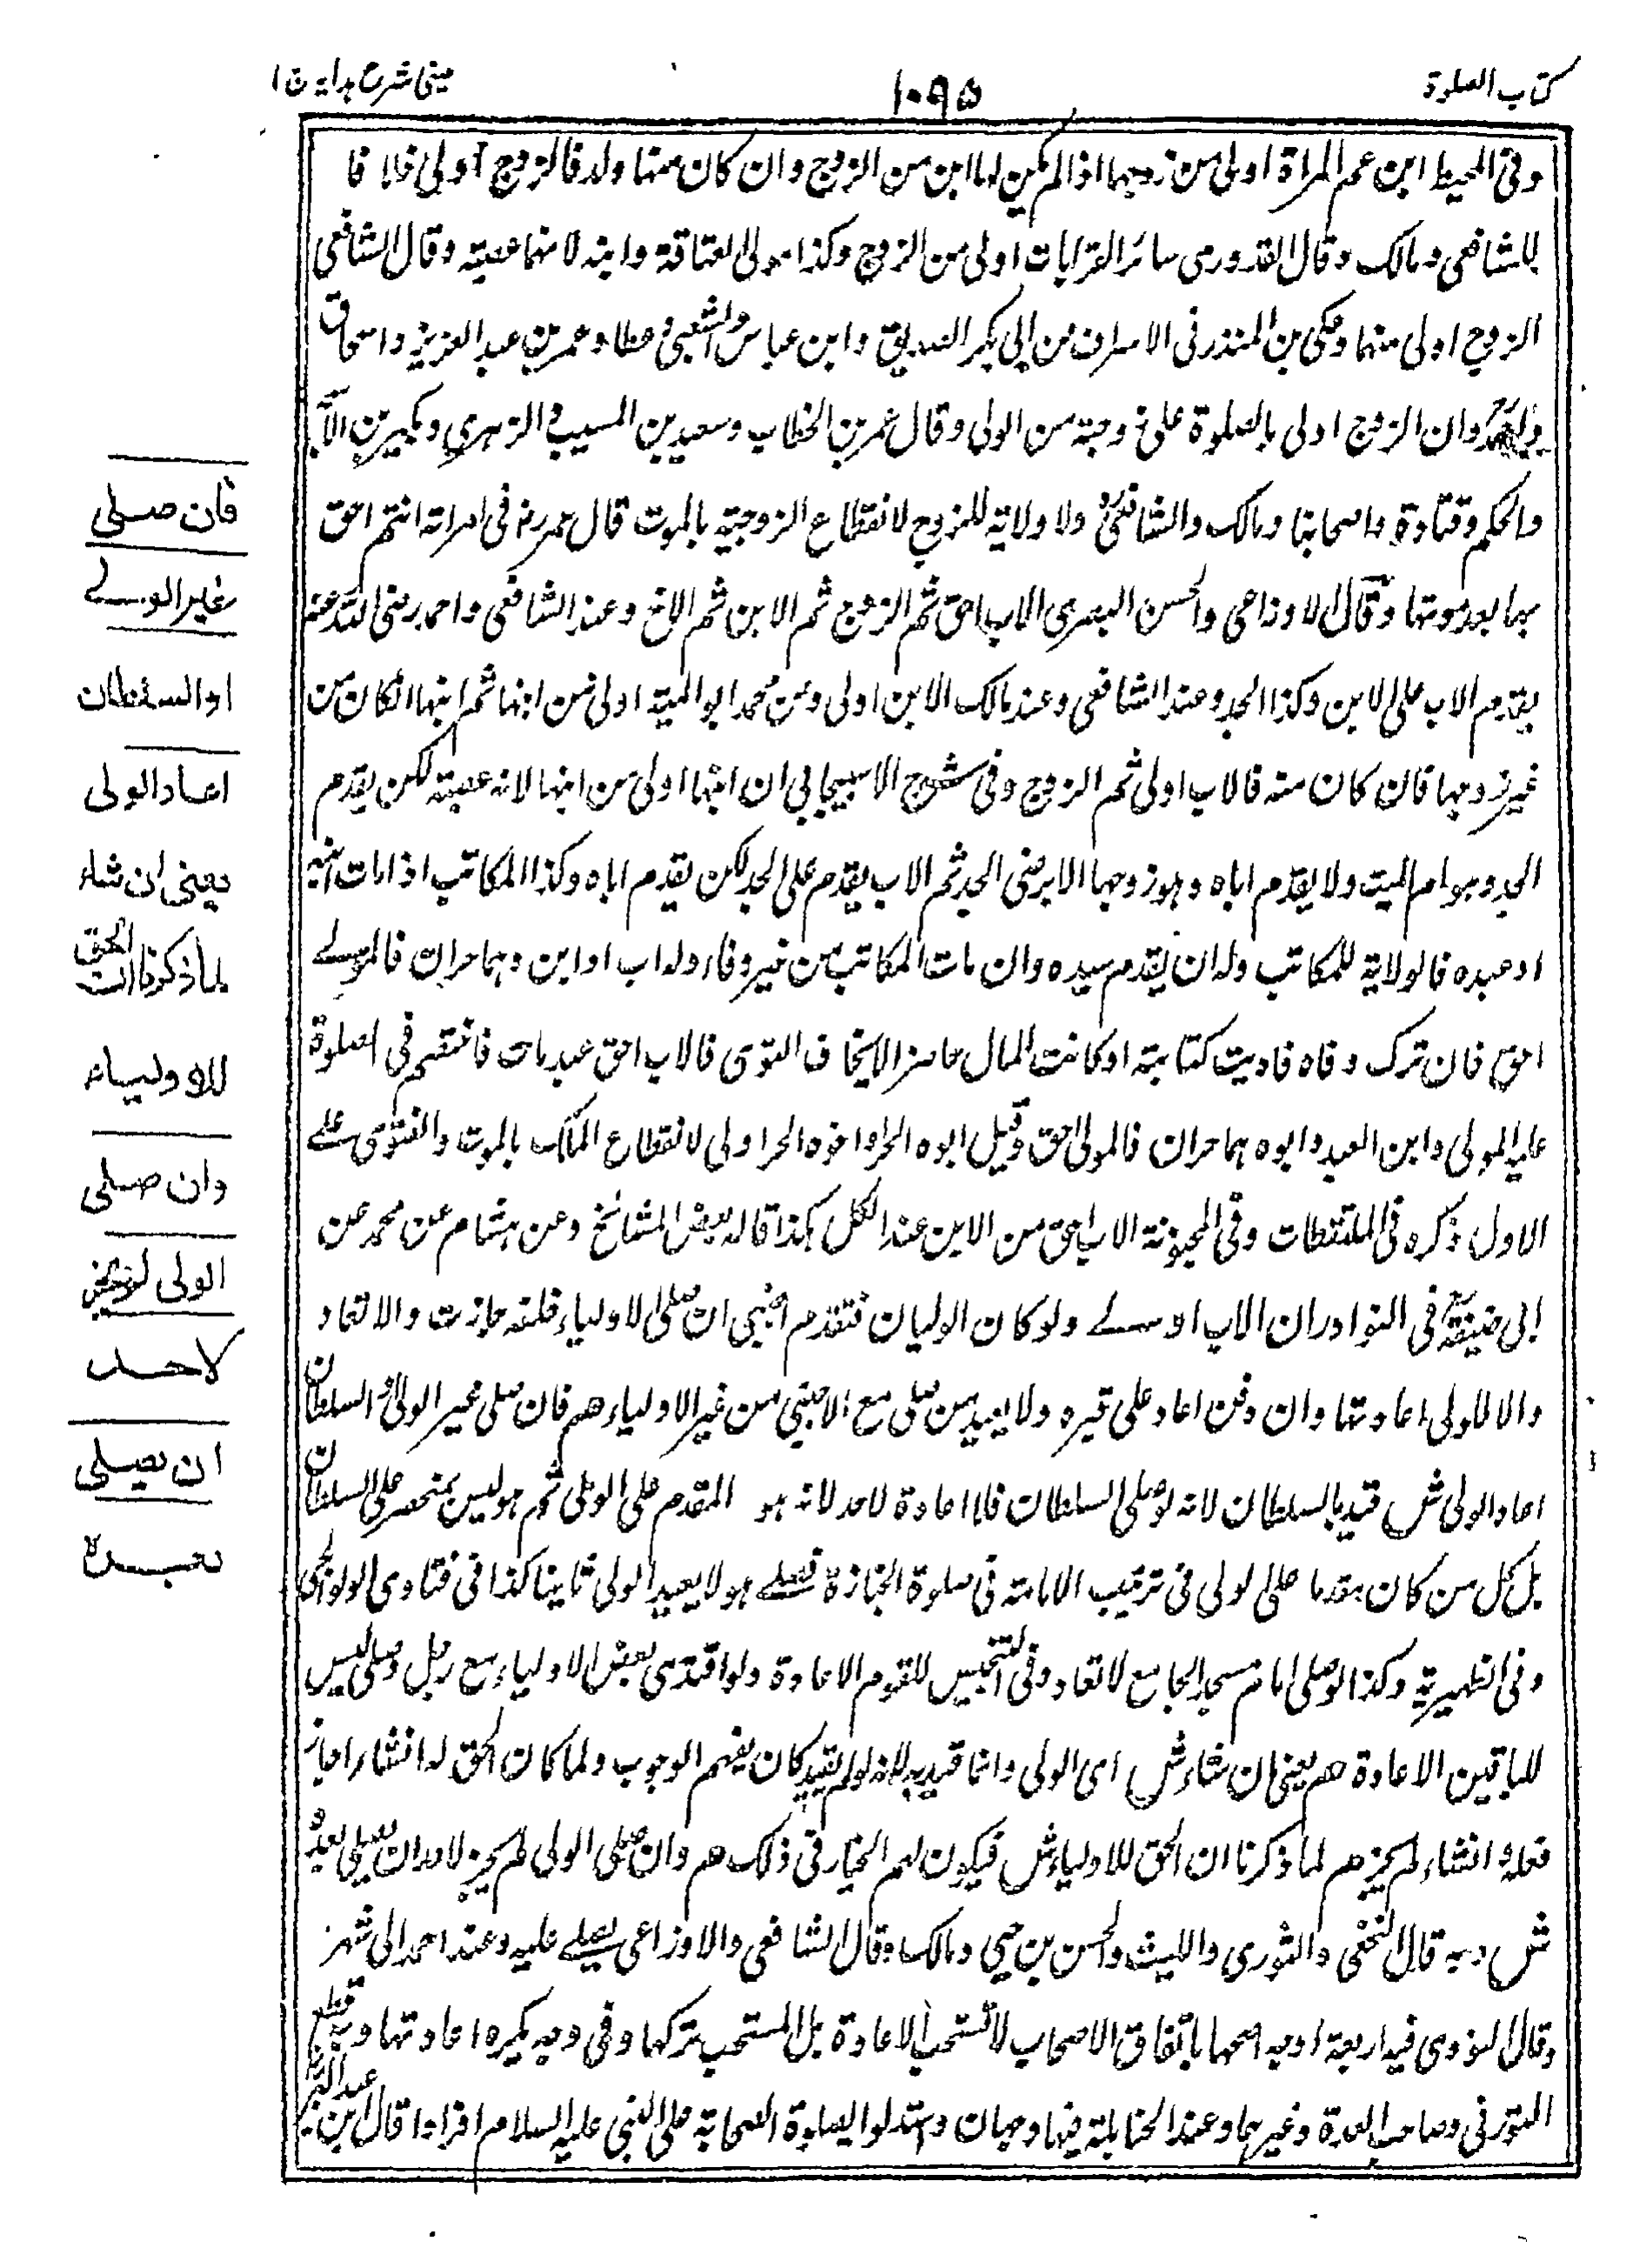 كتاب الصلوة
١٠٩٥
عينى شرح هدايه ج ١
وفى المحيط ابن عم المراة اولى من زوجها اذا لم يكن لها ابن من الزوج وان كان منها ولد فالزوج اولى خلافا
للشافعى ومالك وقال القدورى سائر القرابات اولى من الزوج وكذا مولى العتاقة وابنه لانهما عصبته وقال الشافعى
الزوج اولى منهما وحكى بن المنذر فى الاسراف عن ابى بكر الصديق وابن عباس والشعبى وعطا وعمر بن عبد العزيز واسحاق
واحمد وان الزوج اولى بالصلوة على زوجته من الولى وقال عمر بن الخطاب وسعيد بن المسيب والزهرى وبكير بن الأ
والحكم وقتادة واصحابنا ومالك والشافعى ولا ولاية للزوج لانقطاع الزوجية بالموت قال عمر رض فى امراته انتم احق
بها بعد موتها وقال الاوزاعى والحسن البصرى الاب احق ثم الزوج ثم الابن ثم الاخ وعند الشافعى واحمد رضى الله عنه
يقدم الاب على الابن وكذا الجد وعند الشافعى وعند مالك الابن اولى وعن محمد ابو الميتة اولى من ابنها ثم ابنها انكان من
غير زوجها فان كان منه فالاب اولى ثم الزوج وفى شرح الاسبيجابى ان ابنها اولى من ابنها لانه عصبته لكن يقدم
الجد وهو ام الميت ولا يقدم اباه وهو زوجها الا برضى الجد ثم الاب يقدم على الجد لكن يقدم اباه وكذا المكاتب اذا مات ابنه
او عبده فالولاية للمكاتب وله ان يقدم سيده وان مات المكاتب من غير وفاء وله اب او ابن وهما حران فالمولے
احق فان ترك وفاه فاديت كتابته او كانت المال حاضرا لايخاف التوى فالاب احق عبد مات فاختصم فى الصلوة
عليه المولى وابن العبد وابوه هما حران فالمولى احق وقيل ابوه الحر واخوه الحر اولى لانقطاع الملك بالموت والفتوى علے
الاول ذكره فى الملتقطات وفى المجنونة الاب احق من الابن عند الكل هكذا قاله بعض المشائخ وعن هشام عن محمد عن
ابى حنيفة فى النوادر ان الاب اولے ولو كان الوليان فتقدم اجنبى ان صلى الاولياء خلفه جازت والا تعاد
والا للولى اعادتها وان دفن اعاد على قبره ولا يعيد من صلى مع الاجنبى من غير الاولياء هم فان صلى غير الولى او السلطان
اعاد الولى ش قيد بالسلطان لانه لو صلى السلطان فلا اعادة لاحد لانه هو المقدم على الولى ثم هو ليس بمنحصر على السلطان
بل كل من كان مقدما على الولى فى ترتيب الامامة فى صلوة الجنازة فصلے هو لا يعيد الولى ثانيا كذا فى فتاوى الولوالجى
وفى الظهيرية وكذا لو صلى امام مسجد الجامع لا تعاد وفى التجنيس للقوم الاعادة ولو اقتدى بعض الاولياء مع رجل وصلى ليس
للباقين الاعادة هم يعنى ان شاء ش اى الولى وانما قيد به لانه لو لم يقيد كان يفهم الوجوب ولما كان الحق له انشاء اجاز
فعله وانشاء لم يجز هم لما ذكرنا ان الحق للاولياء ش فيكون لهم الخيار فى ذلك هم وان صلى الولى لم يجز لاحد ان يصلى بعده
ش وبه قال النخعى والثورى والليث والحسن بن حيى ومالك وقال الشافعى والاوزاعى يصلے عليه وعند احمد الى شهر
وقال النووى فيه اربعة اوجه اصحها باتفاق الاصحاب لا تستحب الاعادة بل المستحب تركها وفى وجه يكره اعادتها وبه قطع
وصاحب العدة وغيرهما وعند الحنابلة فيها وجهان واستدلوا بصلوة الصحابة على النبى عليه السلام افرادا قال ابن عبد البر
فان صلى
غير الولے
او السلطان
اعاد الولى
يعنى ان شاء
لما ذكرنا ان الحق
للاولياء
وان صلى
الولى لم يجز
لاحد
ان يصلى
بعده